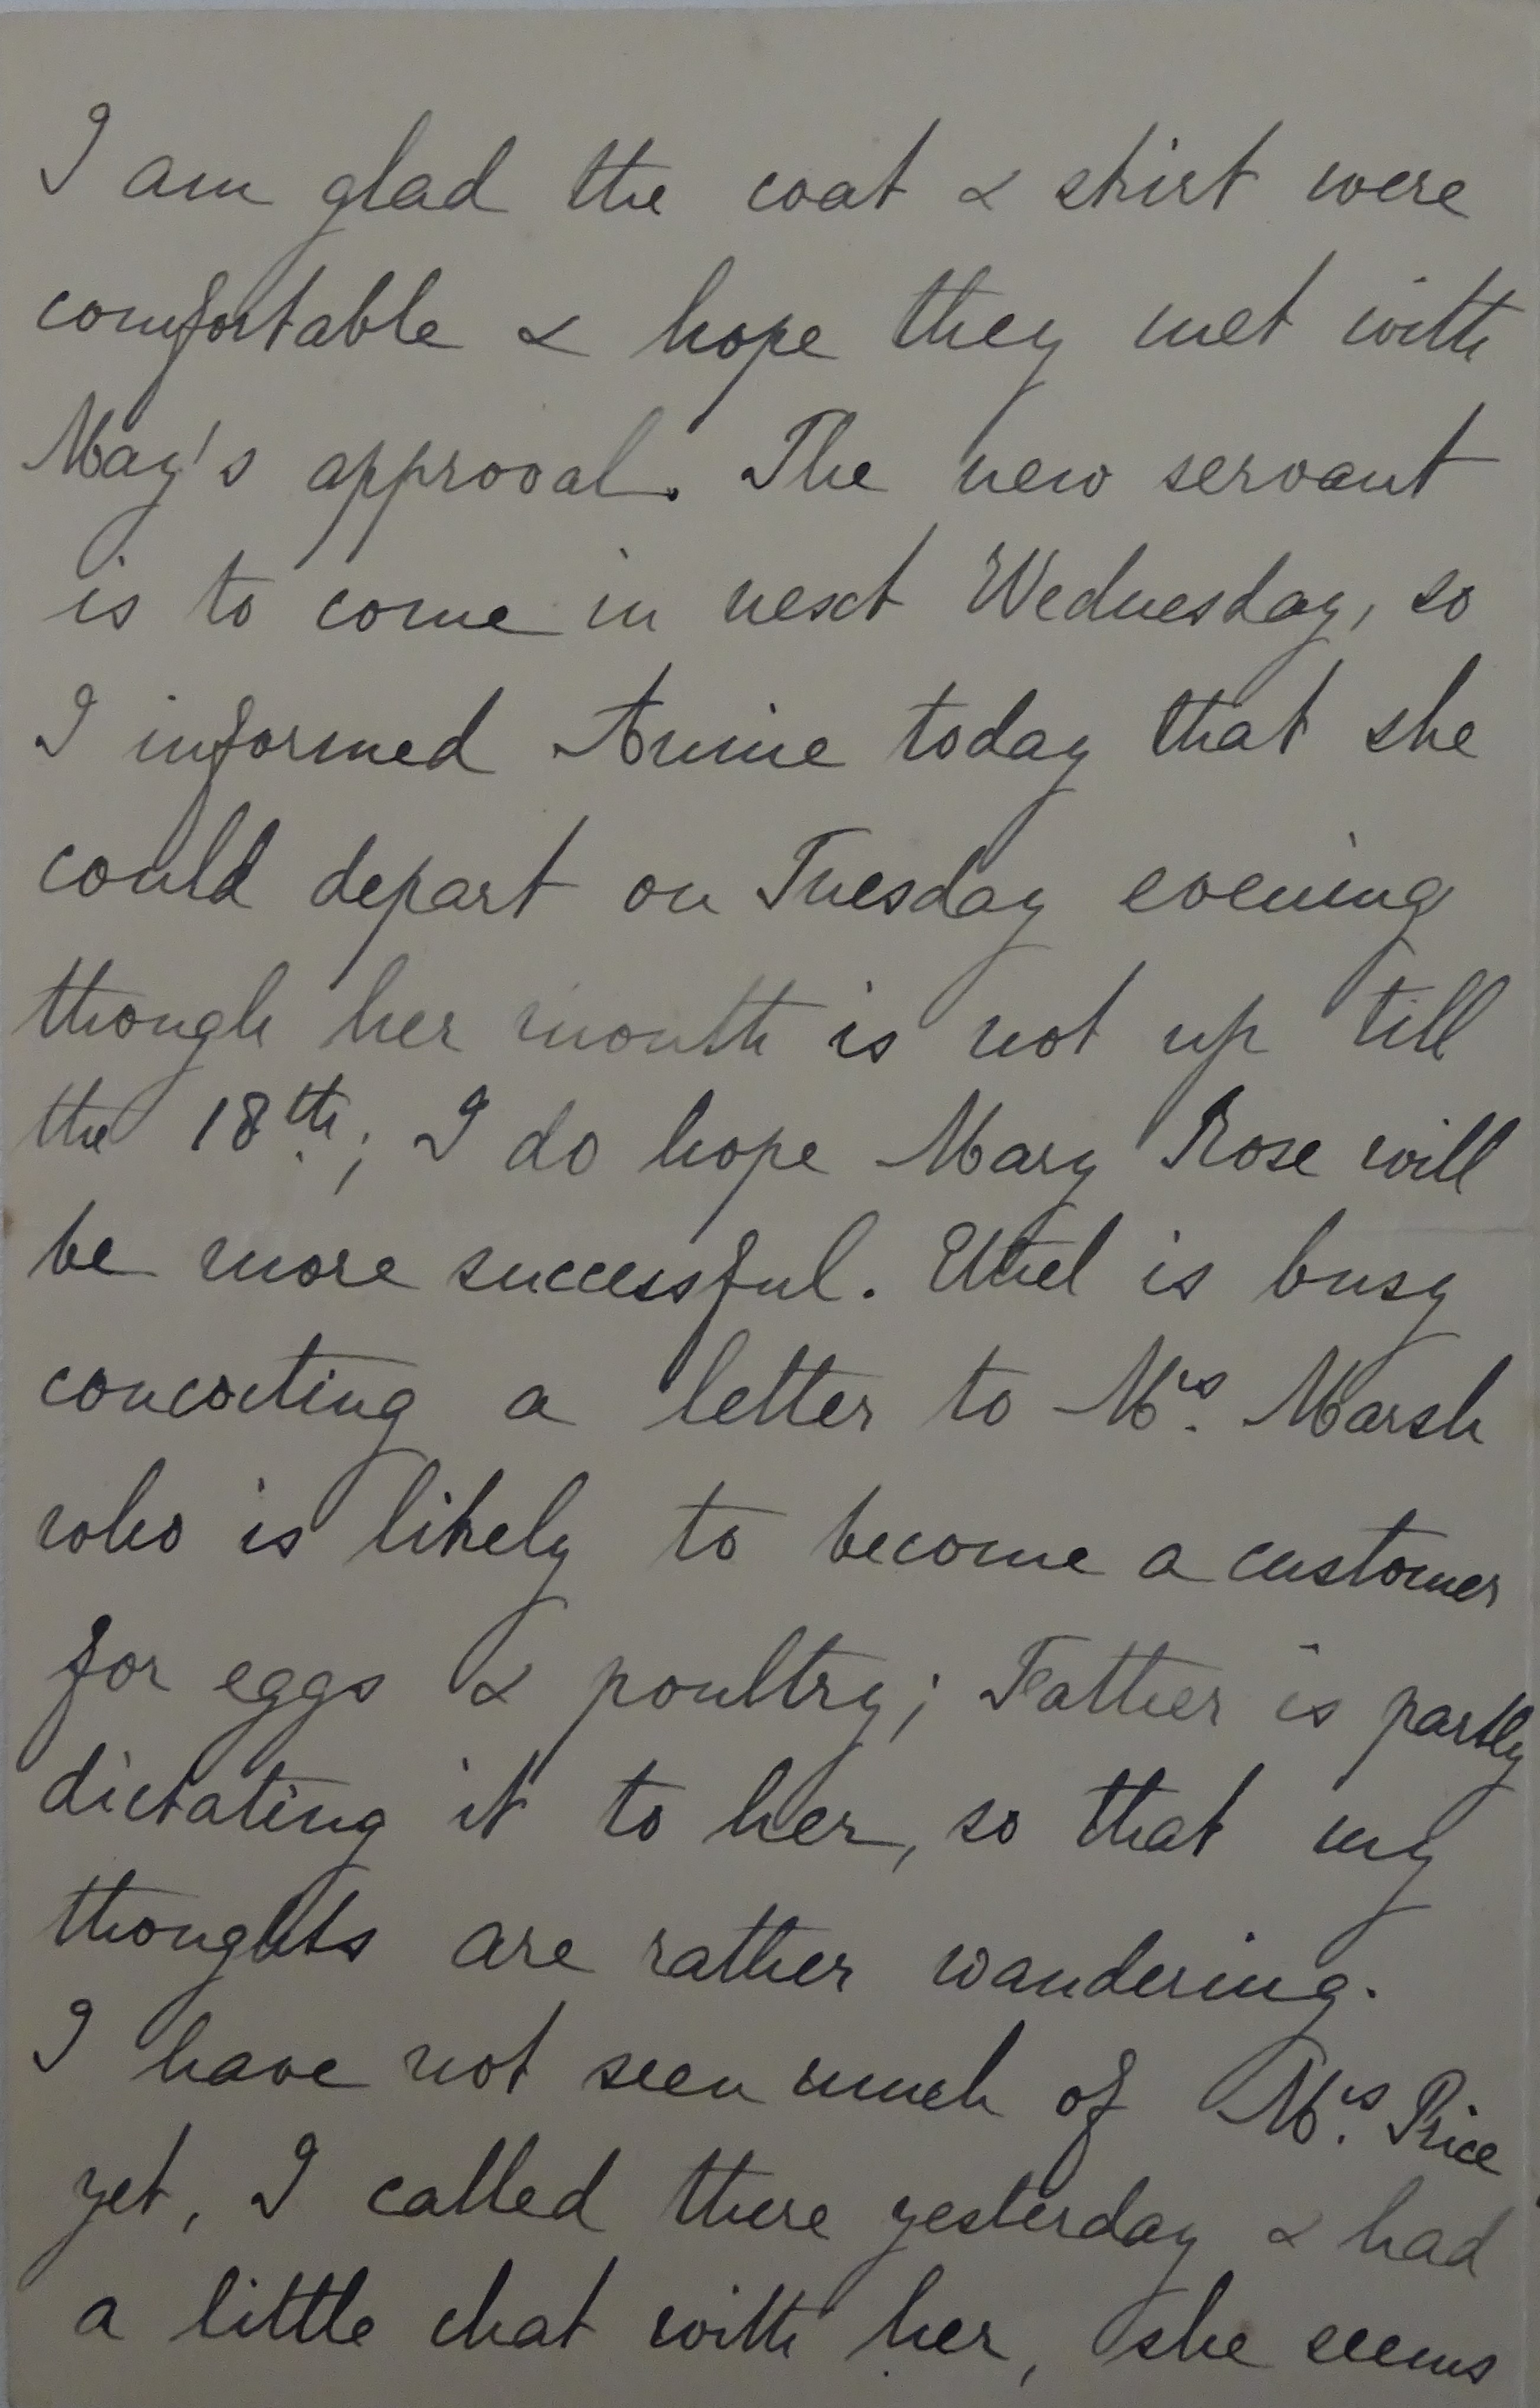 I am glad the coat & shirt were
comfortable & hope they met with
May's approval. The new servant
is to come in next Wednesday, so
I informed Annie today that she
could depart on Tuesday evening
though her month is not up till
the 18th; I do hope Mary Rose will
be more successful. Ethel is busy
concocting a letter to Mrs. Marsh
who is likely to become a customer
for eggs & poultry; Father is partly
dictating it to her, so that my
thoughts are rather wandering.
I have not seen much of Mrs. Price
yet, I called there yesterday & had
a little chat with her, she seems